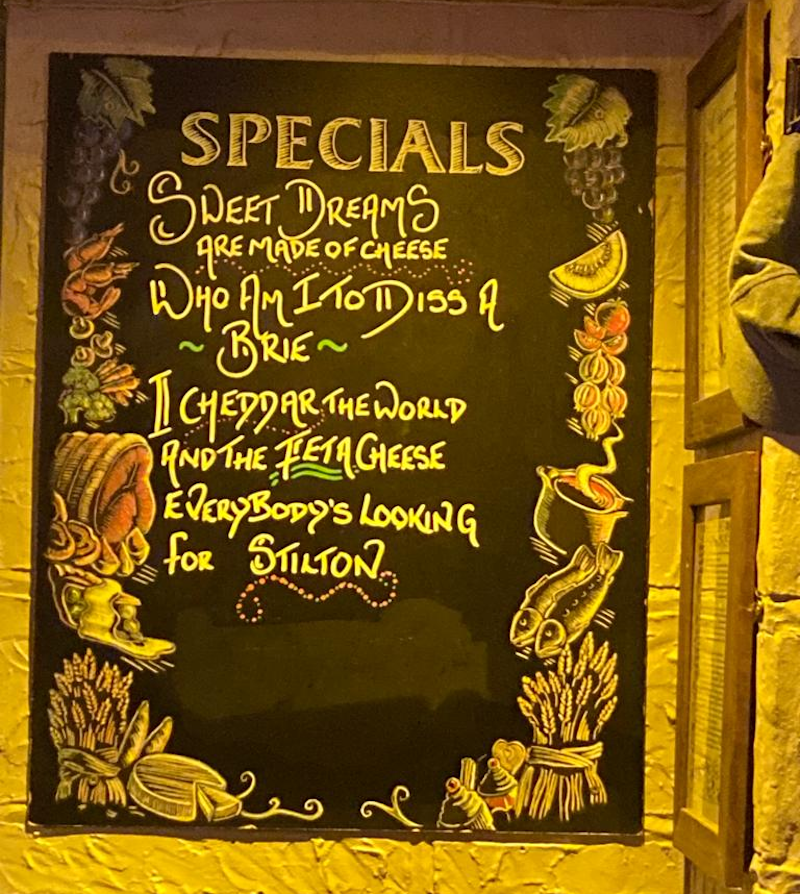 SPECIALS
SWEET DREAMS
ARE MADE OF CHEESE
WHO AM I TO DISS A
~ BRIE ~
I CHEDDAR THE WORLD
AND THE FETA CHEESE
EVERYBODY'S LOOKING
FOR STILTON